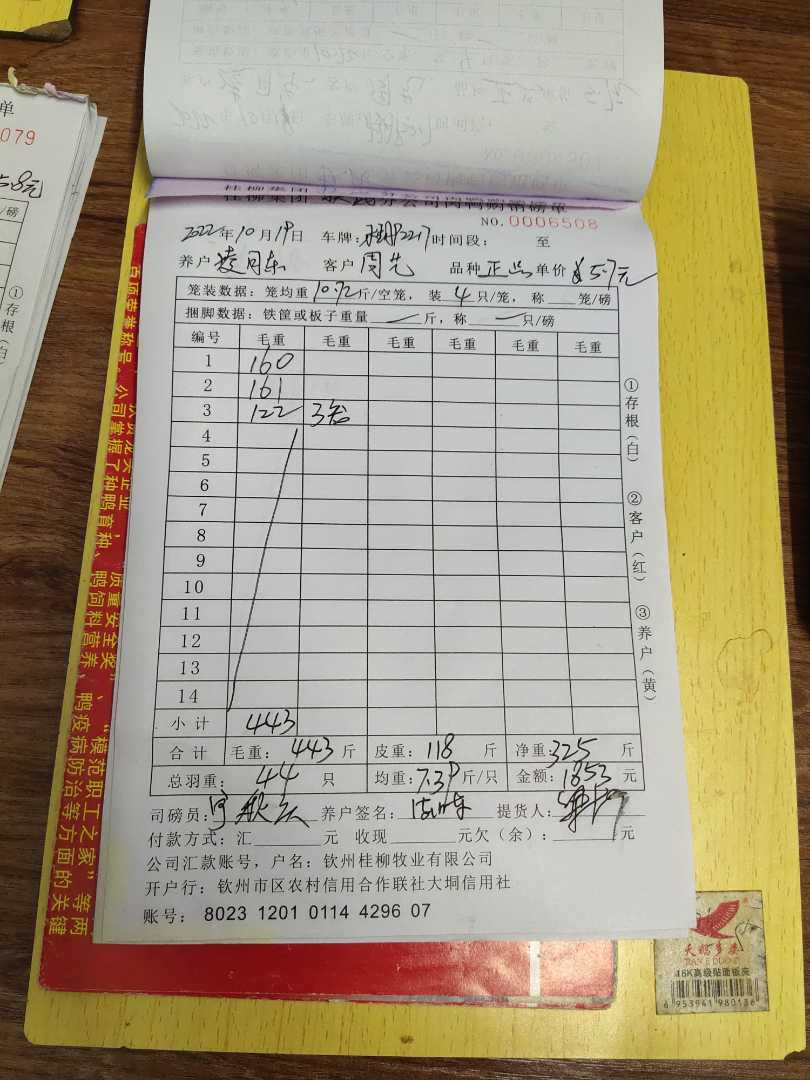 单
079
58元
/磅
①存根(白)
桂柳集团 钦州分公司肉鸭销磅单
NO.0006508
2022年10月19日 车牌: 2217 时间段: 至
养户 凌月东 客户 周先 品种 正品 单价 ¥5.7元
笼装数据: 笼均重 10.72 斤/空笼, 装 4 只/笼, 称 笼/磅
捆脚数据: 铁筐或板子重量 斤, 称 只/磅
编号 毛重 毛重 毛重 毛重 毛重 毛重
1 160
2 161
3 122 3笼
4
5
6
7
8
9
10
11
12
13
14
小计 443
合计 毛重: 443 斤 皮重: 118 斤 净重: 325 斤
总羽重: 44 只 均重: 7.39 斤/只 金额: 1853 元
司磅员: 养户签名: 提货人:
付款方式: 汇 元 收现 元欠(余): 元
公司汇款账号, 户名: 钦州桂柳牧业有限公司
开户行: 钦州市区农村信用合作联社大垌信用社
账号: 8023 1201 0114 4296 07
①存根(白)
②客户(红)
③养户(黄)
百项荣誉称号。
质量安全奖”、“模范职工之家”等两
公司掌握了种鸭育种、鸭饲料营养、鸭疫病防治等方面的关键
16K高级贴面板夹
6 953941 980136